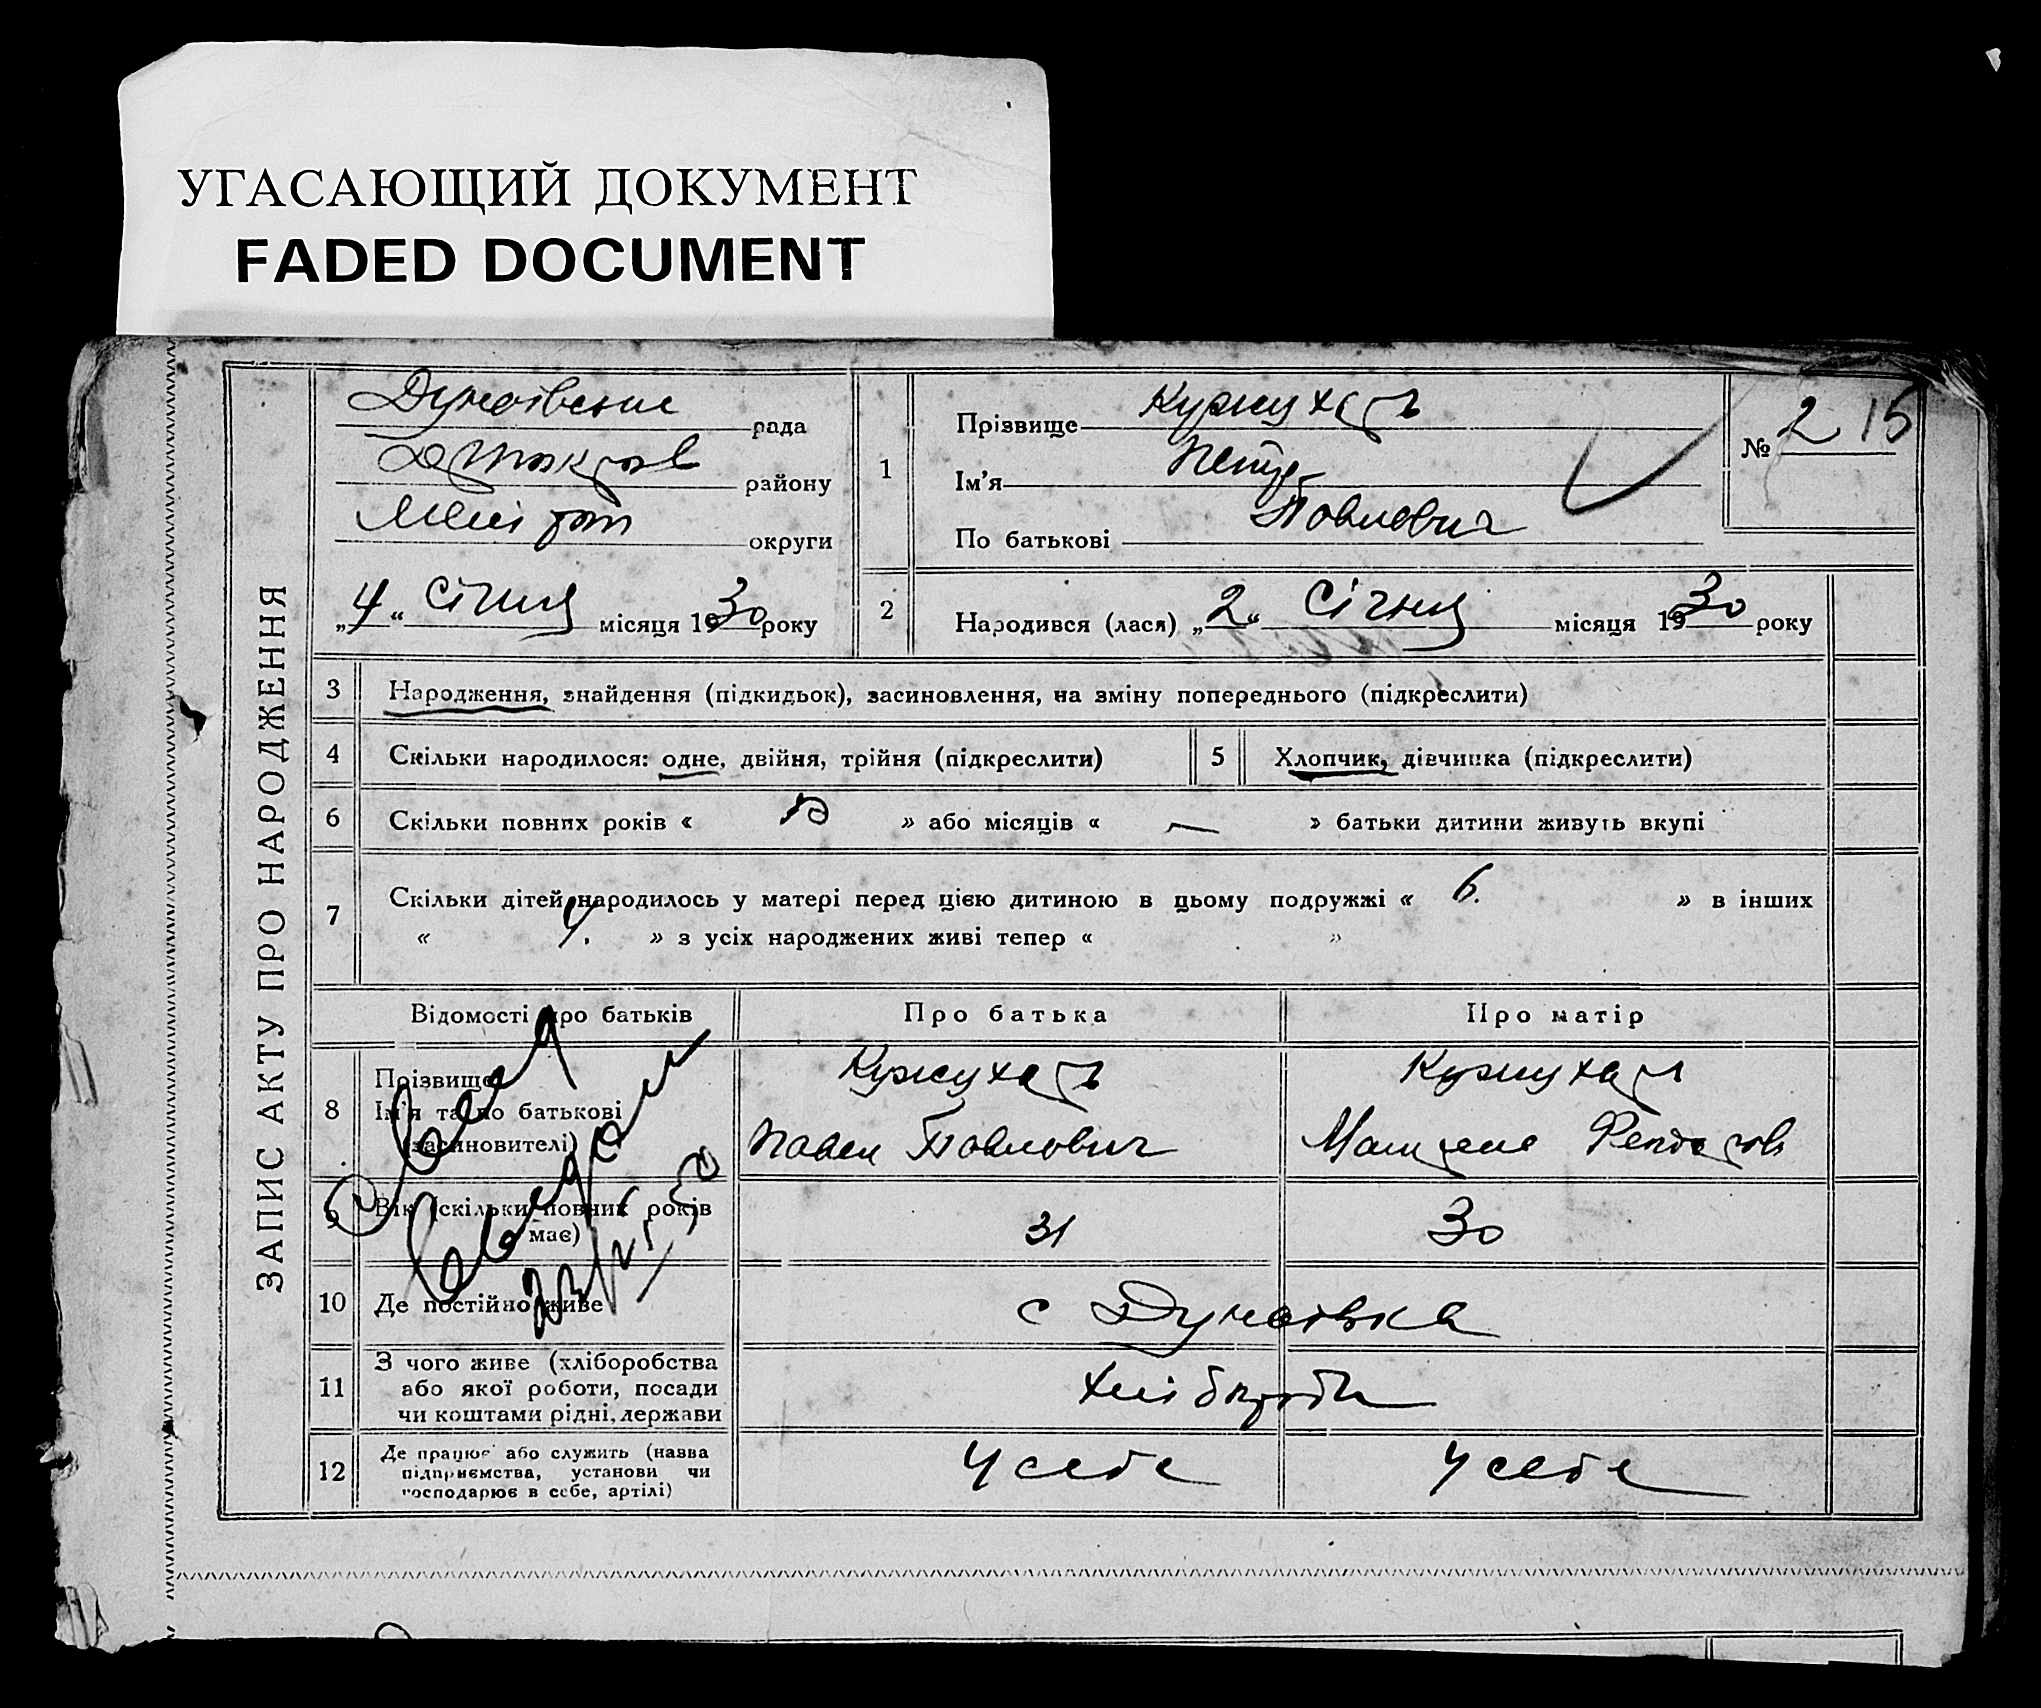 УГАСАЮЩИЙ ДОКУМЕНТ
FADED DOCUMENT
ЗАПИС АКТУ ПРО НАРОДЖЕННЯ
Дунаївська рада
району
округи
„4“ Січня місяця 1930 року
1
Прізвище Кужухарь
Ім'я Петро
По батькові Павлович
№ 2 15
2
Народився (лася) „2“ Січня місяця 1930 року
3 Народження, знайдення (підкидьок), засиновлення, на зміну попереднього (підкреслити)
4 Скільки народилося: одне, двійня, трійня (підкреслити)
5 Хлопчик, дівчинка (підкреслити)
6 Скільки повних років « 10 » або місяців « — » батьки дитини живуть вкупі
7 Скільки дітей народилось у матері перед цією дитиною в цьому подружжі « 6. » в інших
« 4. » з усіх народжених живі тепер « »
Відомості про батьків Про батька Про матір
8 Прізвище Кужухарь Кужухарь
Ім'я та по батькові
(засиновителі) Павел Павлович
9 Вік (скільки повних років
має) 31 30
10 Де постійно живе с Дунаївка
11 З чого живе (хліборобства
або якої роботи, посади
чи коштами рідні, держави
хлібороби
12 Де працює або служить (назва
підприємства, установи чи
господарює в себе, артілі)
У себе У себе